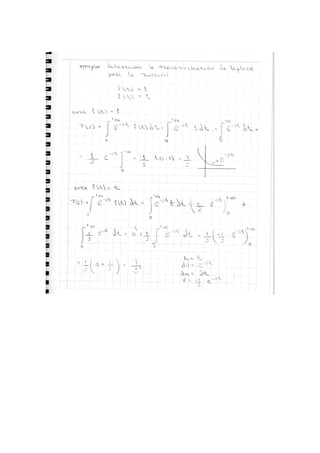 ejemplo determinar la transformación de Laplace
para la función
F(t) = 1
F(t) = t
para F(t) = 1
F(s) = ∫₀^{+∞} e^{-st} F(t) dt = ∫₀^{+∞} e^{-st} 1 dt = ∫₀^{+∞} e^{-st} dt =
= -1/s e^{-st} ]₀^{+∞} = -1/s (0-1) = 1/s e^{-st}
para F(t) = t
F(s) = ∫₀^{+∞} e^{-st} F(t) dt = ∫₀^{+∞} e^{-st} t dt = (-t/s e^{-st})₀^{+∞} +
∫₀^{+∞} 1/s e^{-st} dt = 0 + 1/s ∫₀^{+∞} e^{-st} dt = 1/s (-1/s e^{-st})₀^{+∞}
= 1/s (0 + 1/s) = 1/s²
u = t
dv = e^{-st}
du = dt
v = -1/s e^{-st}